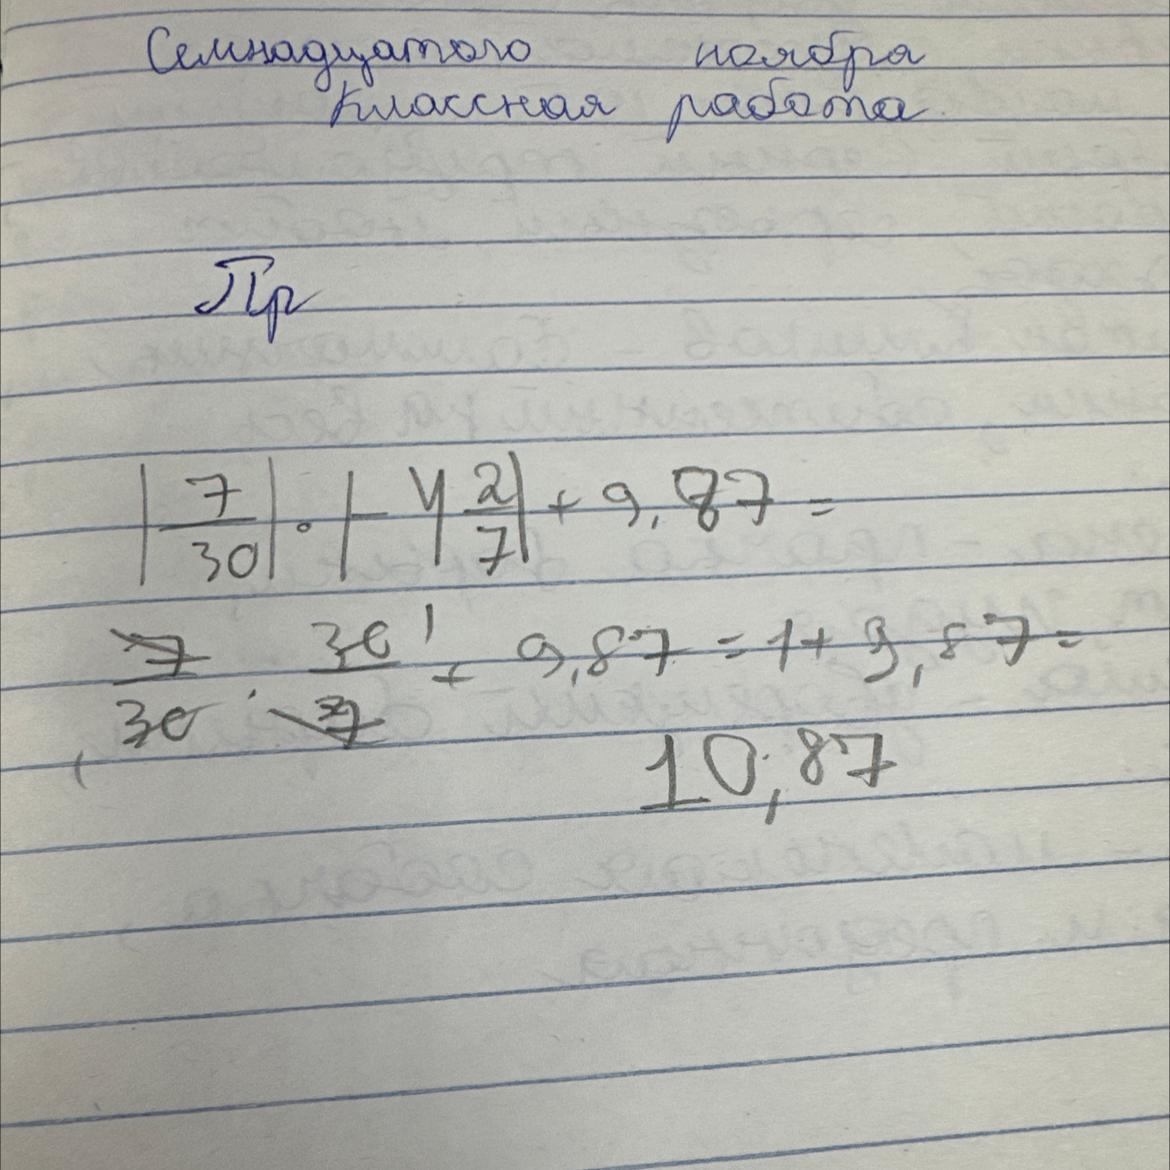 Семнадцатого ноября
Классная работа
Пр
|7/30| · |-4 2/7| + 9,87 =
7/30 · 30/7 + 9,87 = 1 + 9,87 =
10,87